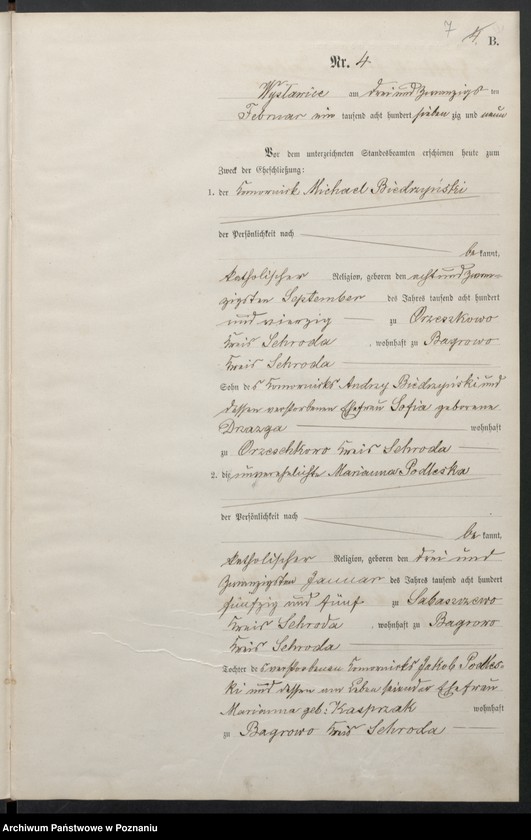 7
4. B.
Nr. 4
Wyslawice am drei und zwanzigs ten
Februar ein tausend acht hundert sieben zig und neun
Vor dem unterzeichneten Standesbeamten erschienen heute zum
Zweck der Eheschließung:
1. der Komornik Michael Biedrzyński
der Persönlichkeit nach
be kannt,
katholischer Religion, geboren den acht und zwan-
zigsten September des Jahres tausend acht hundert
und vierzig zu Orzeszkowo
Kreis Schroda, wohnhaft zu Bagrowo
Kreis Schroda
Sohn des Komorniks Andrzy Biedrzyński und
dessen verstorbenen Ehefrau Sofia geborene
Drazga wohnhaft
zu Orzeschkowo Kreis Schroda
2. die unverehelichte Marianna Podleska
der Persönlichkeit nach
be kannt,
katholischer Religion, geboren den drei und
zwanzigsten Januar des Jahres tausend acht hundert
fünfzig und fünf zu Sabaszczewo
Kreis Schroda, wohnhaft zu Bagrowo
Kreis Schroda
Tochter des verstorbenen Komorniks Jakob Podles-
ki und dessen am Leben seiender Ehefrau
Marianna geb: Kasprzak wohnhaft
zu Bagrowo Kreis Schroda
Archiwum Państwowe w Poznaniu